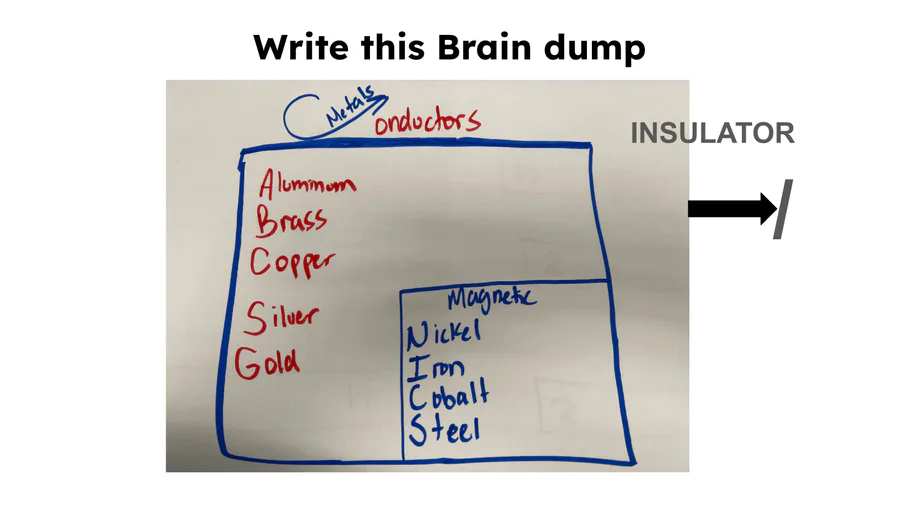 Write this Brain dump
Metals
Conductors
INSULATOR
Aluminum
Brass
Copper
Silver
Gold
Magnetic
Nickel
Iron
Cobalt
Steel